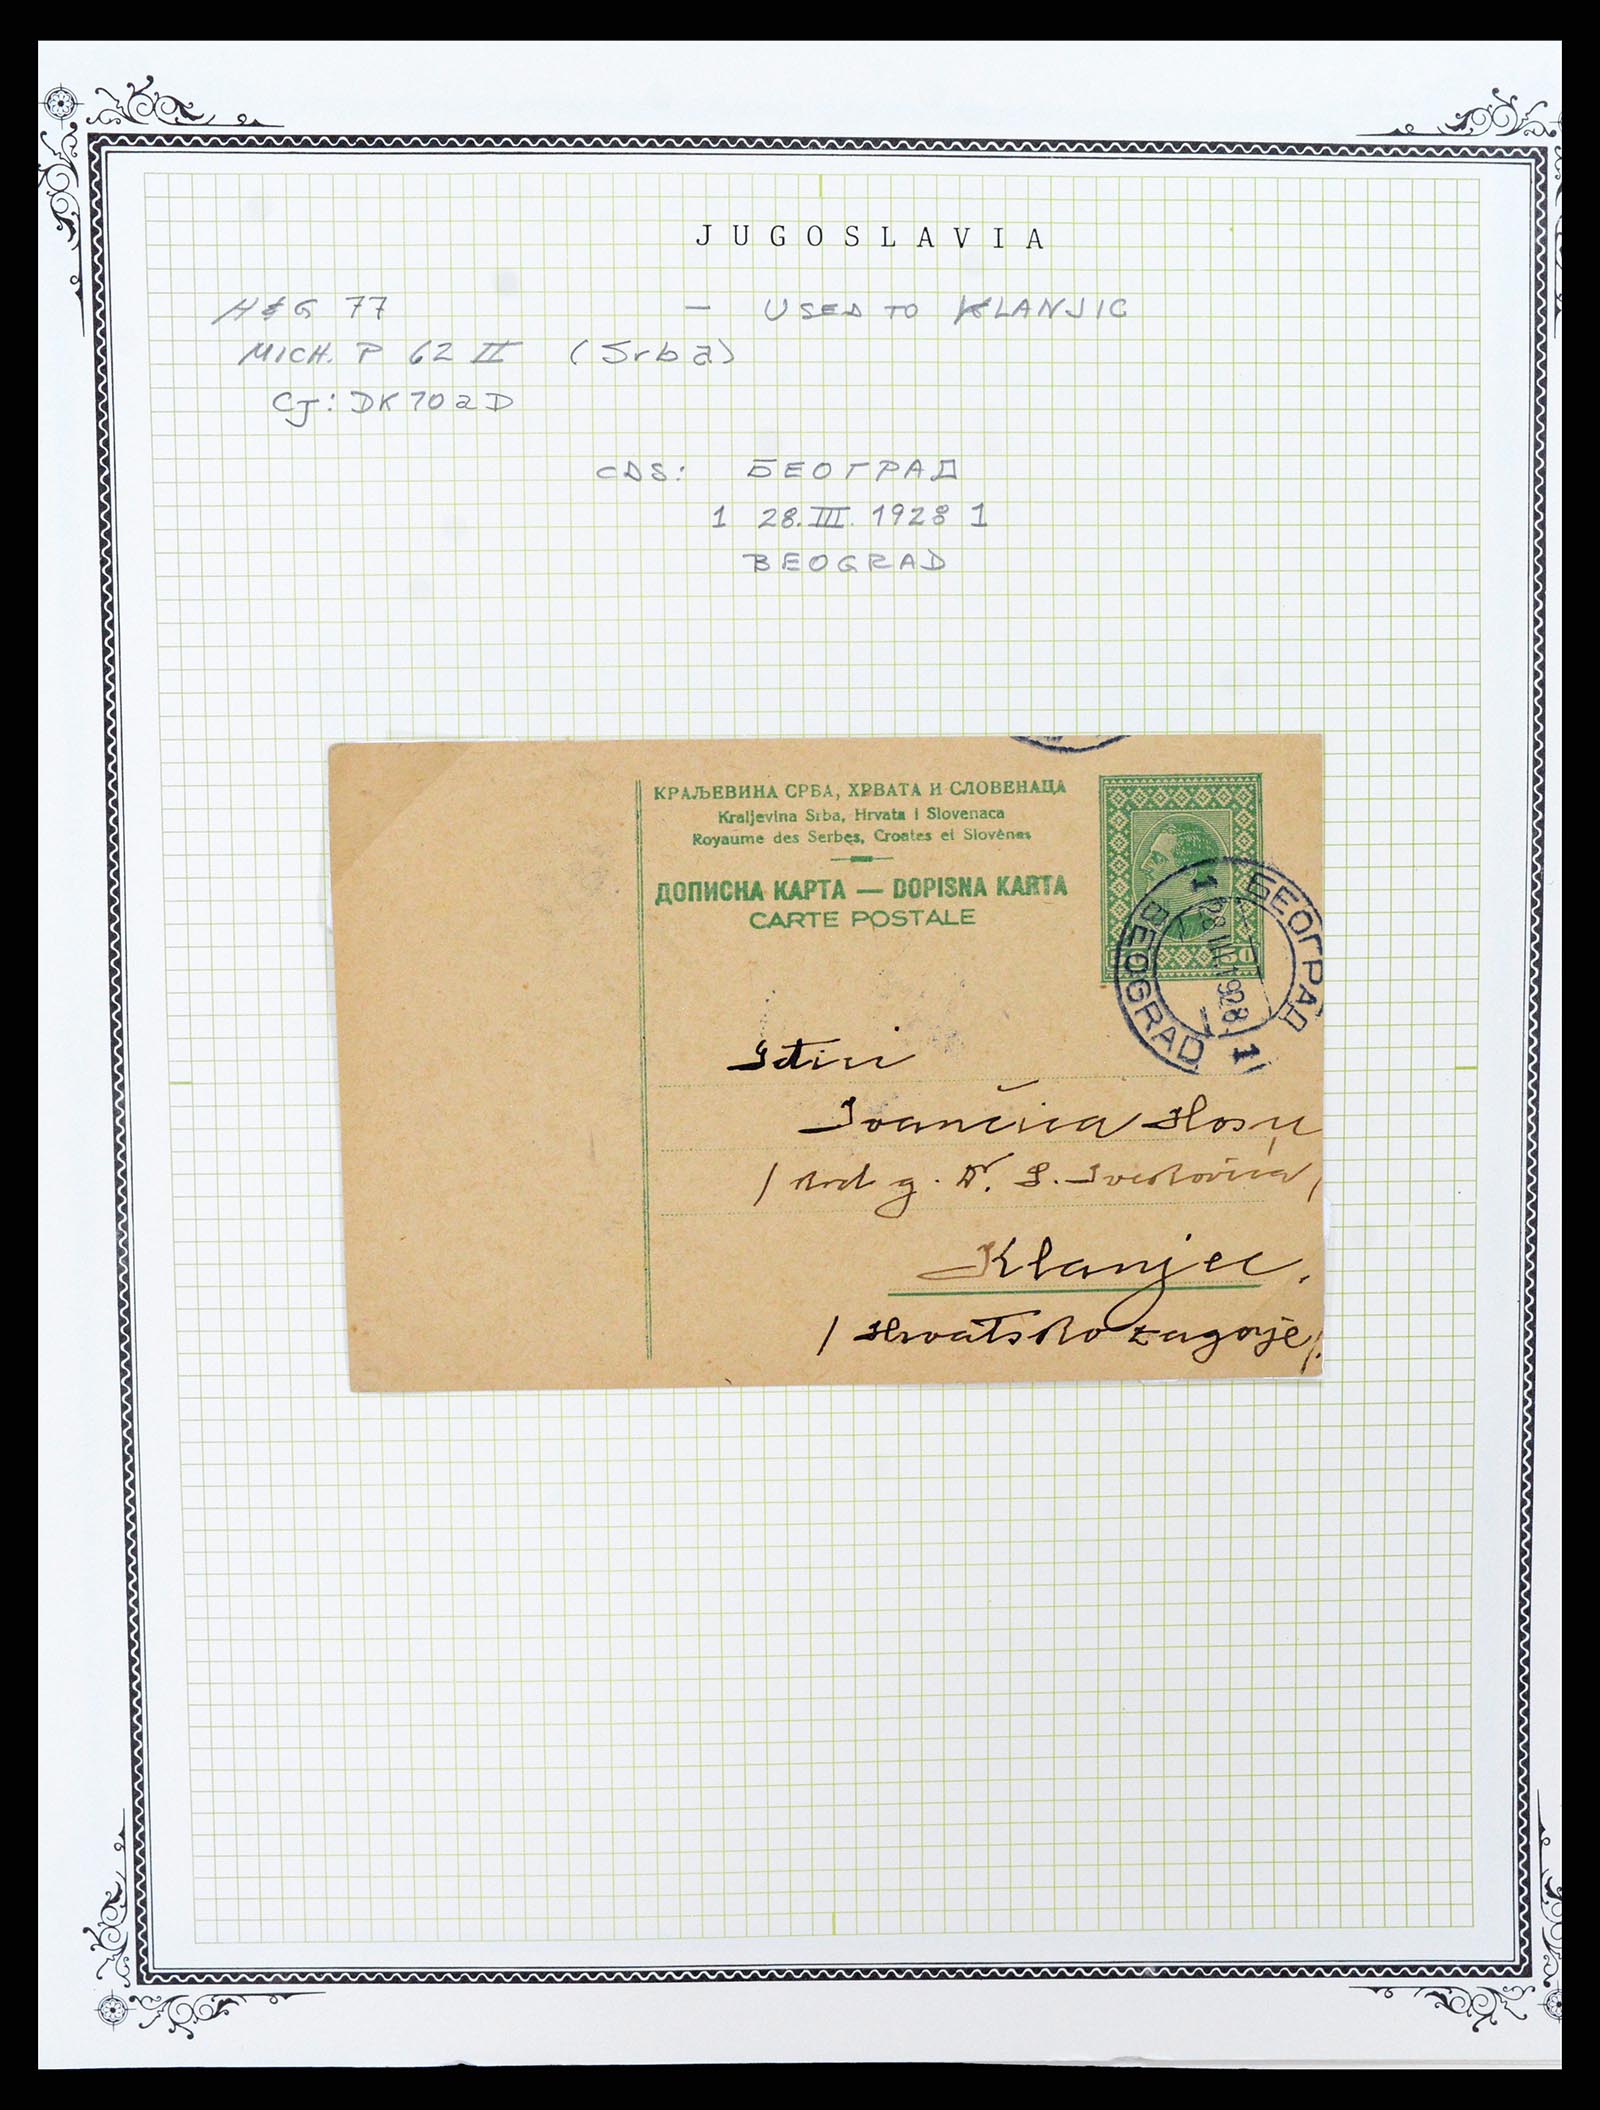 JUGOSLAVIA
H&G 77 – USED TO KLANJIC
MICH. P 62 II (Srba)
CJ: DK 70 a D
CDS: БЕОГРАД
1 28.III.1928 1
BEOGRAD
КРАЉЕВИНА СРБА, ХРВАТА И СЛОВЕНАЦА
Kraljevina Srba, Hrvata i Slovenaca
Royaume des Serbes, Croates et Slovènes
ДОПИСНА КАРТА — DOPISNA KARTA
CARTE POSTALE
50
1 БЕОГРАД
28 III 1928
BEOGRAD 1
Ivančica
/ kod g. Dr.
Klanjec,
/ Hrvatsko zagorje /.